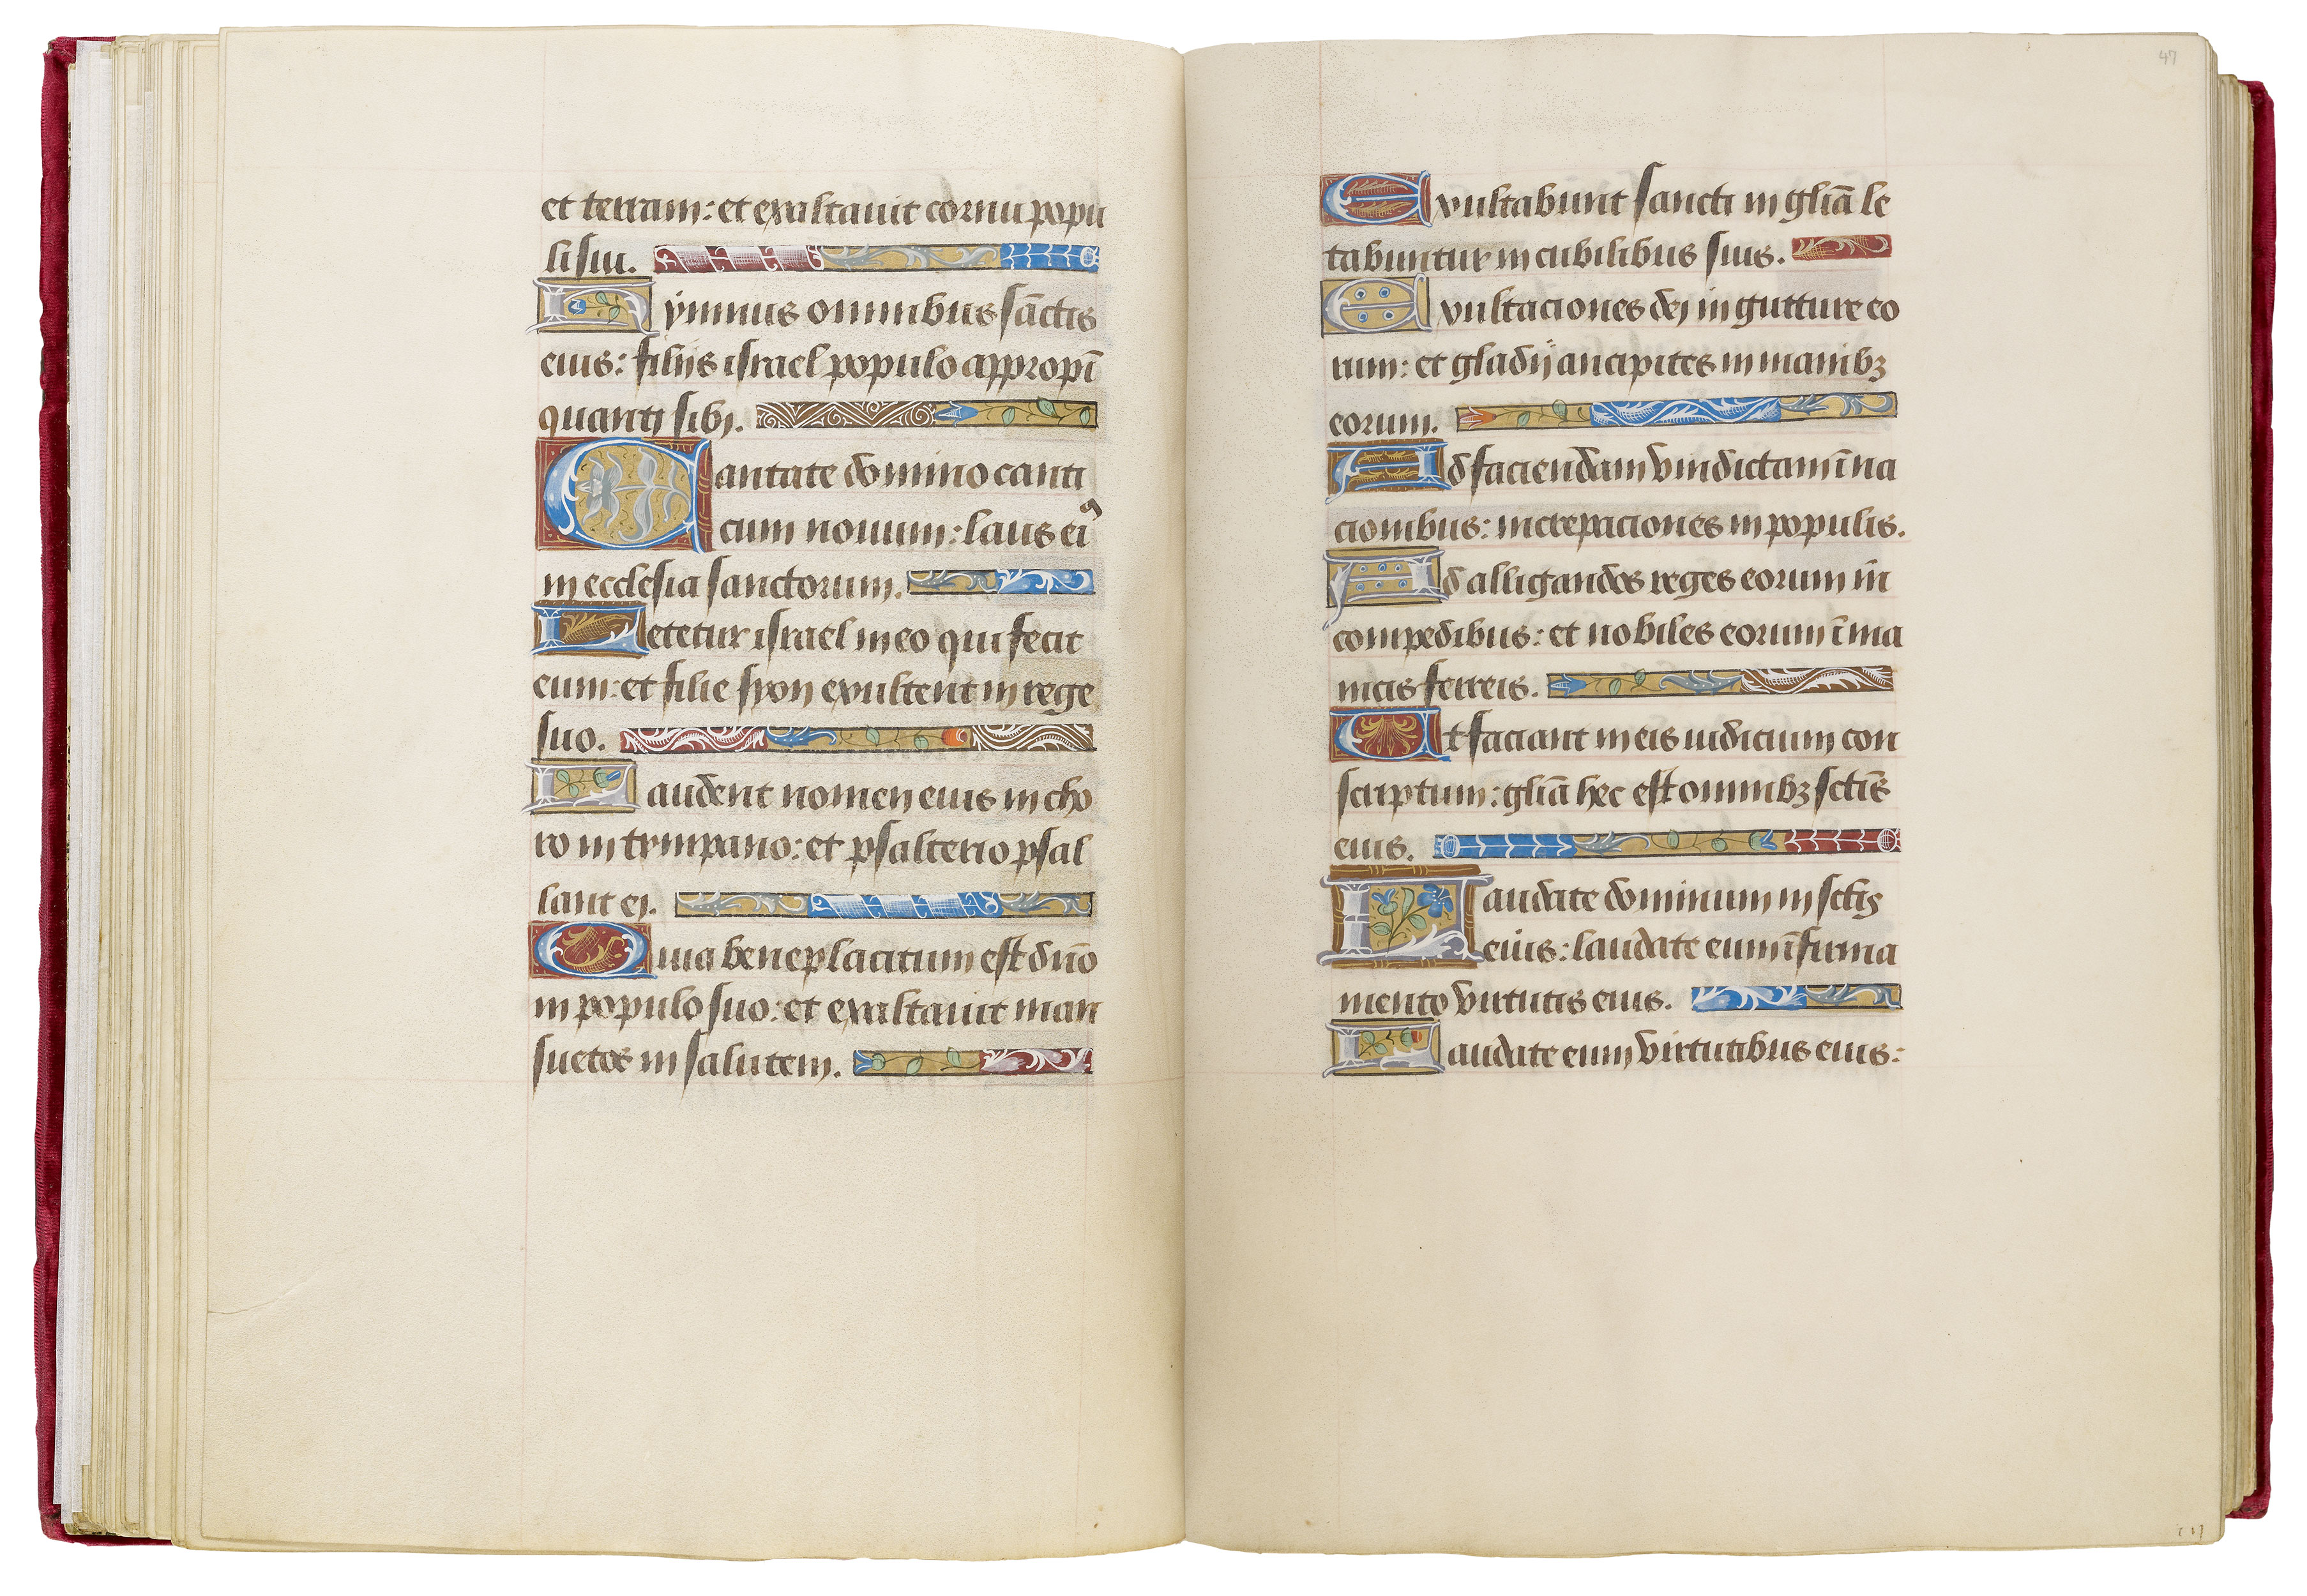 et terram: et exaltauit cornu popu
li sui.
Hÿmnus omnibus sāctis
eius: filijs israel populo appropī
quanti sibi.
Cantate domino canti
cum nouum: laus eiꝰ
in ecclesia sanctorum.
Letetur israel in eo qui fecit
eum: et filie syon exultent in rege
suo.
Laudent nomen eius in cho
ro in tympano: et psalterio psal
lant ei.
Quia beneplacitum est dn̄o
in populo suo: et exaltauit man
suetos in salutem.
47
Exultabunt sancti in gl̄ia le
tabuntur in cubilibus suis.
Exultaciones dei in gutture eo
rum: et gladij ancipites in manibꝫ
eorum.
Ad faciendam vindictam ī na
cionibus: increpaciones in populis.
Ad alligandos reges eorum in
compedibus: et nobiles eorum ī ma
nicis ferreis.
Ut faciant in eis iudicium con
scriptum: gl̄ia hec est omnibꝫ sctīs
eius.
Laudate dominum in sctis
eius: laudate eum ī firma
mento virtutis eius.
Laudate eum virtutibus eius: